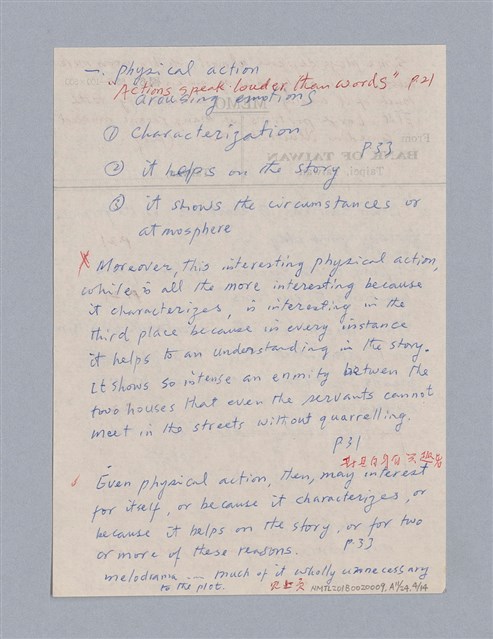 一. physical action
"Actions speak louder than words" p.21
arousing emotions
① Characterization
p.33
② it helps on the story
③ it shows the circumstances or
atmosphere
Moreover, this interesting physical action,
which is all the more interesting because
it characterizes, is interesting in the
third place because in every instance
it helps to an understanding in the story.
It shows so intense an enmity between the
two houses that even the servants cannot
meet in the streets without quarrelling.
p.31
Even physical action, then, may interest
for itself, or because it characterizes, or
because it helps on the story, or for two
or more of these reasons. p.33
melodrama — much of it wholly unnecessary
to the plot.
NMTL20180020009, A11/24, 4/14
From
BANK OF TAIWAN
Taipei,